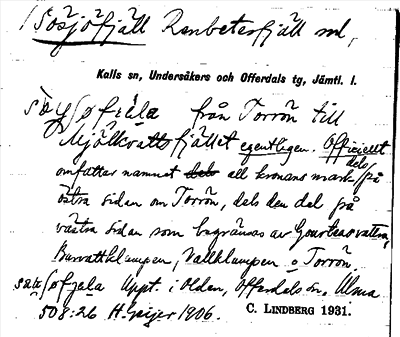 Sösjöfjäll Renbetesfjäll
Kalls sn, Undersåkers och Offerdals tg, Jämtl. l.
från Torrön till
Mjölkvattsfjället egentligen. Officiellt
omfattar namnet dels all kronans mark på
östra sidan om Torrön, dels den del på
västra sidan som begränsas av
Burvattklumpen, Vallklumpen o Torrön.
Uppt. i Olden, Offerdals sn.
508:26 H. Geijer 1906. C. LINDBERG 1931.